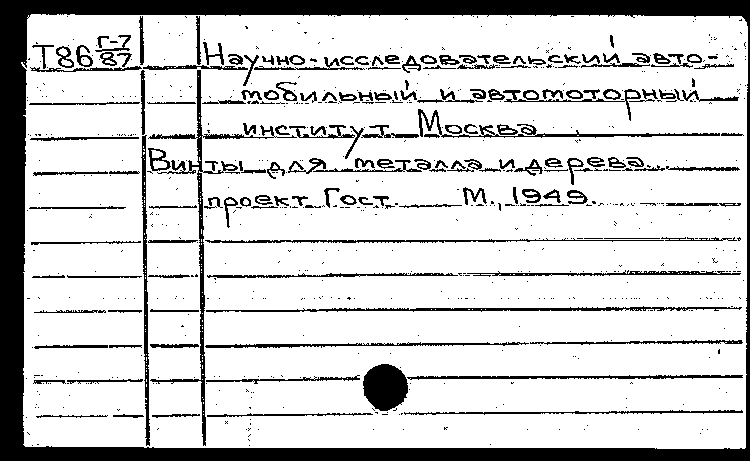 Т86 Г-7/87 Научно-исследовательский авто-
мобильный и автомоторный
институт. Москва
Винты для металла и дерева...
проект Гост. М., 1949.